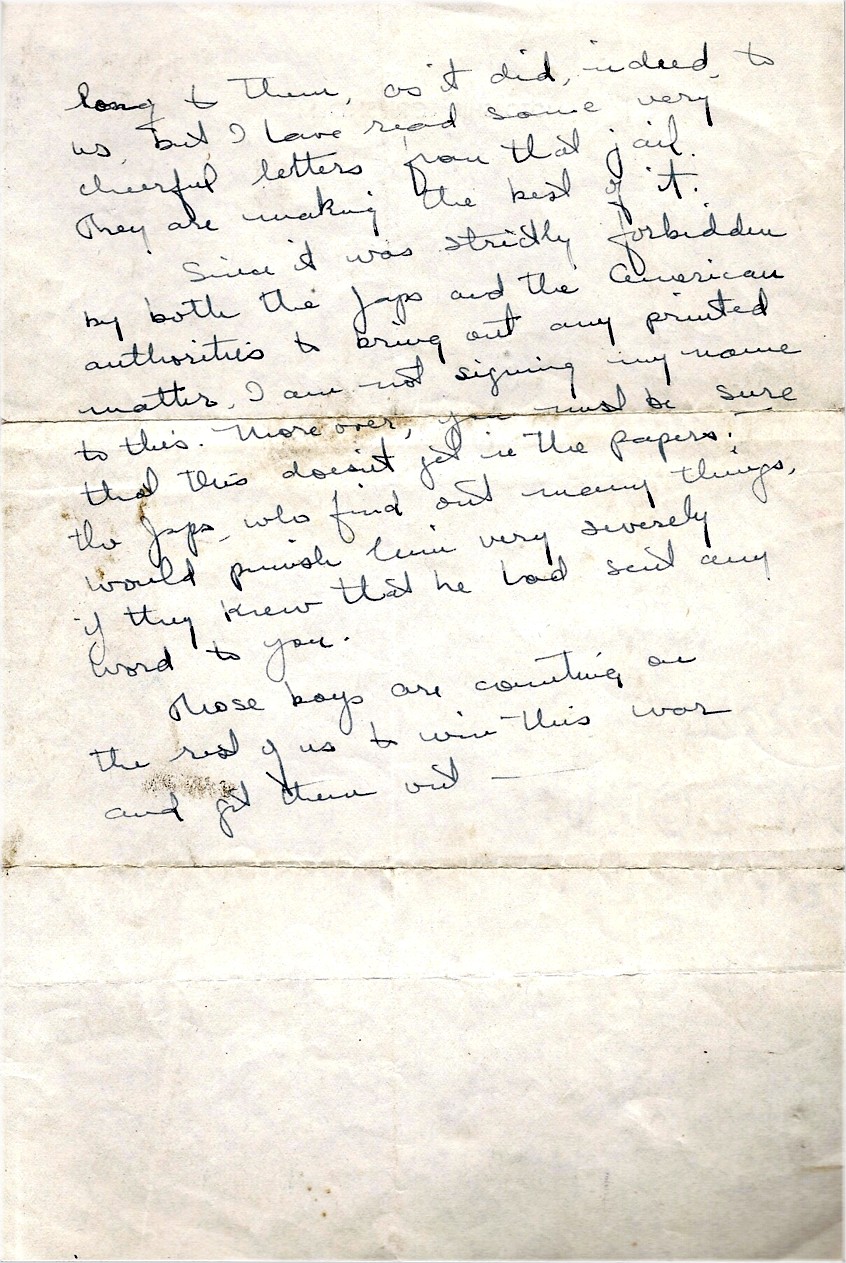 long to them, as it did, indeed, to
us, but I have read some very
cheerful letters from that jail.
They are making the best of it.
Since it was strictly forbidden
by both the Japs and the American
authorities to bring out any printed
matter, I am not signing my name
to this. Moreover, you must be sure
that this doesn't get in the papers:—
the Japs, who find out many things,
would punish him very severely
if they knew that he had sent any
word to you.
Those boys are counting on
the rest of us to win this war
and get them out —